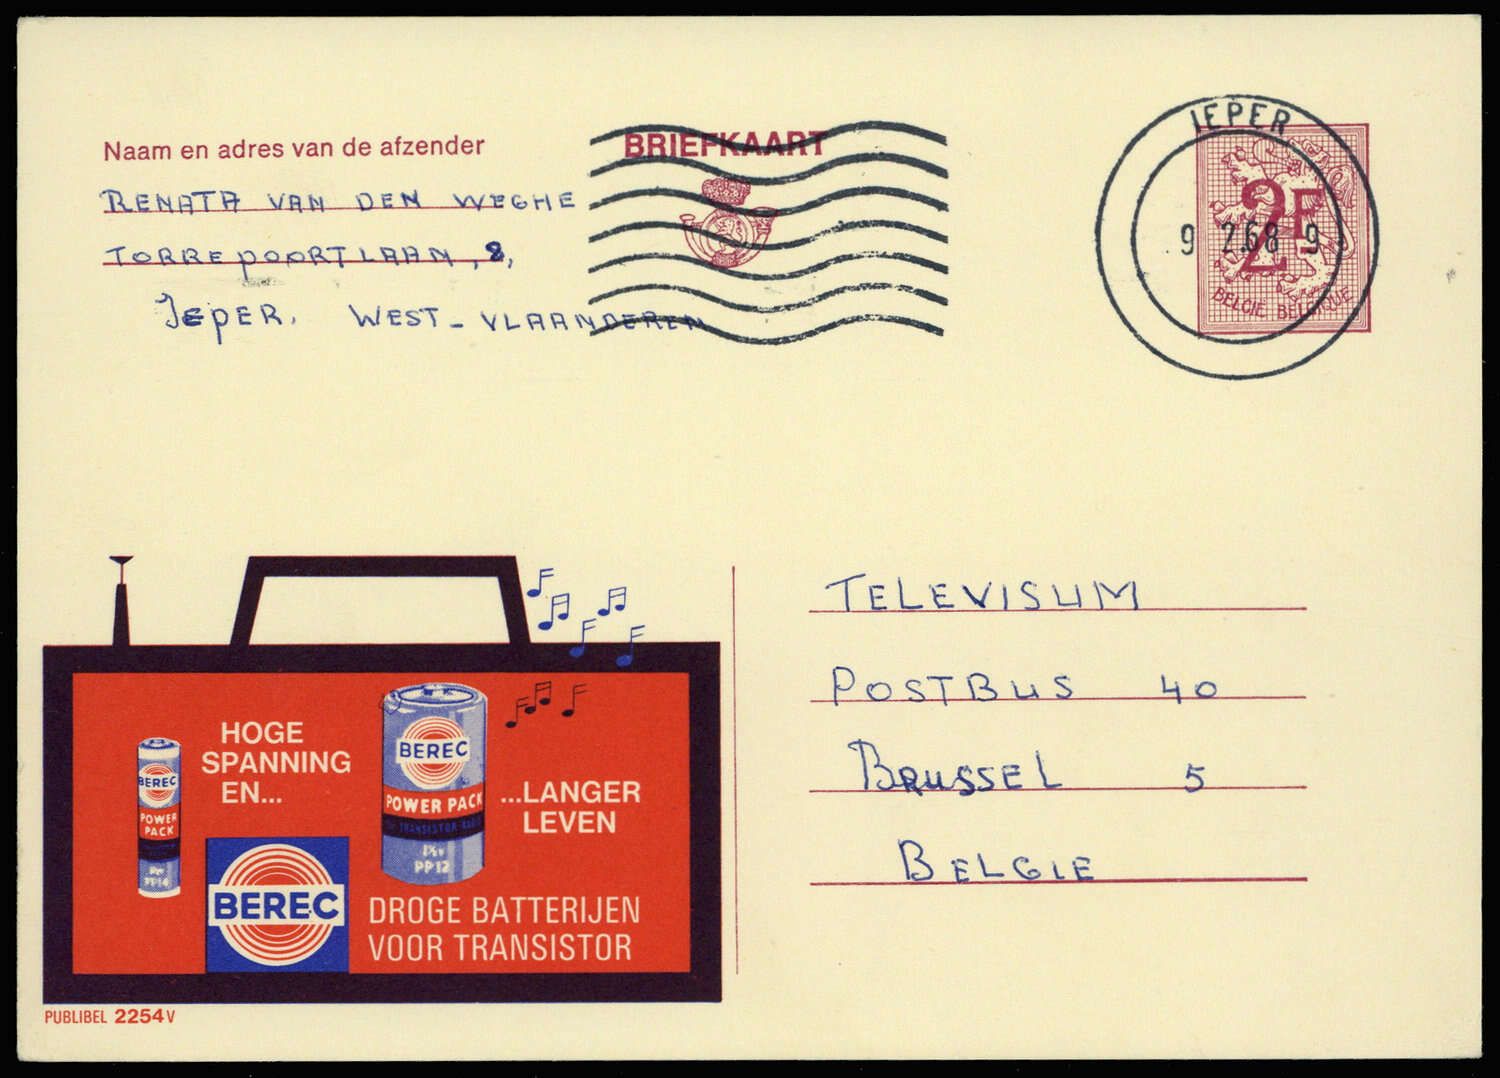 Naam en adres van de afzender
RENATA VAN DEN WEGHE
TORREPOORTLAAN, 8,
IEPER. WEST-VLAANDEREN
BRIEFKAART
IEPER
9 2.68 9
2F
BELGIË BELGIQUE
TELEVISUM
POSTBUS 40
BRUSSEL 5
BELGIE
HOGE
SPANNING
EN...
BEREC
POWER
PACK
BEREC
POWER PACK
TRANSISTOR
1½v
PP12
...LANGER
LEVEN
BEREC
DROGE BATTERIJEN
VOOR TRANSISTOR
PUBLIBEL 2254 V